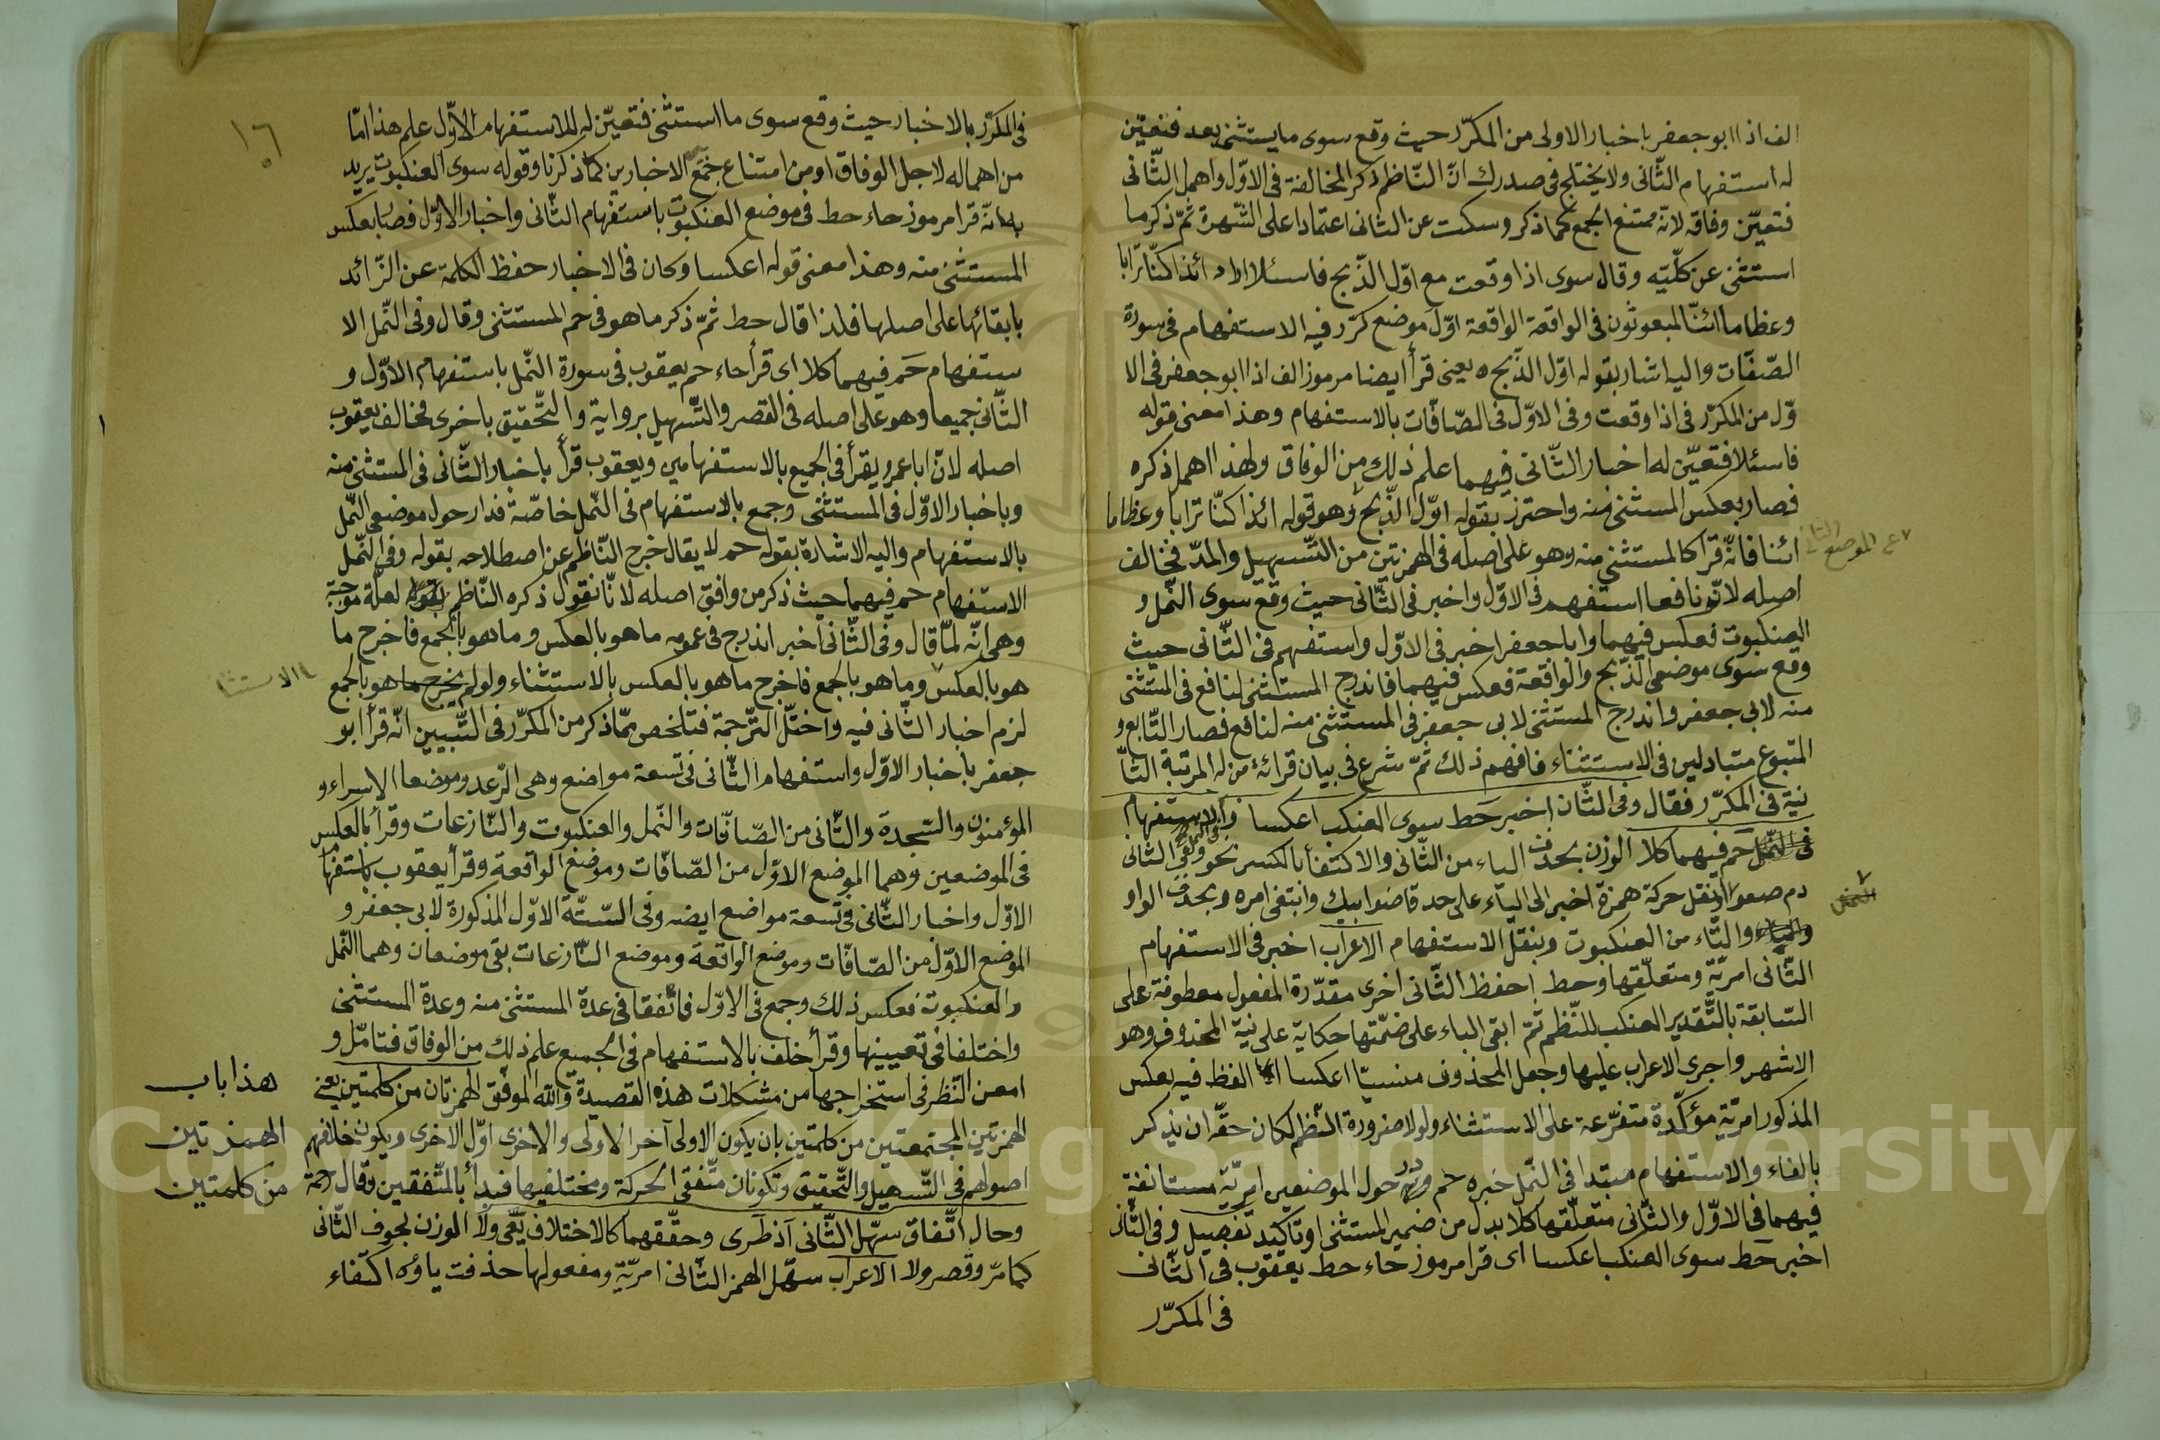 الف اذا ابو جعفر باخبار الاولى من المكرّر حيث وقع سوى ما يستثنى بعد فتعيّن
له استفهام الثّانى ولا يختلج فى صدرك انّ النّاظم ذكر المخالفة فى الاوّل واهمل الثّانى
فتعيّن وفاقه لانّه ممتنع الجمع كما ذكر وسكت عن الثانى اعتمادا على الشّهرة ثمّ ذكر ما
استثنى عن كلّيته وقال سوى اذا وقعت مع اوّل الذّبح فاسئلا اراد ائذا كنّا ترابا
وعظاما ائنّا لمبعوثون فى الواقعة الواقعة اوّل موضع كرّر فيه الاستفهام فى سورة
الصّفّات واليه اشار بقوله اوّل الذّبح ه يعنى قرأ ايضا مرموز الف اذا ابو جعفر فى الا
وّل من المكرّر فى اذا وقعت وفى الاوّل فى الصّافّات بالاستفهام وهذا معنى قوله
فاسئلا فتعيّن له اخبار الثّانى فيهما علم ذلك من الوفاق ولهذا اهمل ذكره
فصار بعكس المستثنى منه واحترز بقوله اوّل الذّبح وهو قوله ائذا كنّا ترابا وعظاما
ائنا فانّه قرا كالمستثنى منه وهو على اصله فى الهمزتين من التّسهيل والمدّ فخالف
٧ عن الموضع الثانى
اصله لانّ نافعا استفهم فى الاوّل واخبر فى الثّانى حيث وقع سوى النّمل و
العنكبوت فعكس فيهما وابا جعفر اخبر فى الاوّل واستفهم فى الثّانى حيث
وقع سوى موضعى الذّبح والواقعة فعكس فيهما فاندرج المستثنى لنافع فى المستثنى
منه لابى جعفر واندرج المستثنى لابى جعفر فى المستثنى منه لنافع فصار التّابع و
المتبوع متبادلين فى الاستثناء فافهم ذلك ثمّ شرع فى بيان قرائة من له المرتبة الثّا
نية فى المكرّر فقال وفى الثّان اخبر حط سوى العنكب اعكسا والاستفهام
فى النّمل حم فيهما كلا الوزن بحذف الياء من الثّانى والاكتفأ بالكسر نحو وفى الثانى
دم صعوا ونقل حركة همزة اخبر الى الياء على حد قاضوا ابيك وابتغى امره وبحذف الواو
النمل
والياء والتّاء من العنكبوت وبنقل الاستفهام الاعراب اخبر فى الاستفهام
الثّانى امريّة ومتعلّقها وحط احفظ الثّانى اخرى مقدّرة المفعول معطوفة على
السّابقة بالتّقدير العنكب للنّظم ثمّ ابقى الباء على ضمّتها حكاية على نية المحذوف وهو
الاشهر واجرى الاعراب عليها وجعل المحذوف منسيّا اعكسا الفظ فيه بعكس
المذكور امريّة مؤكّدة متفرّعة على الاستثناء ولولا ضرورة النّظم لكان حقّه ان يذكر
بالفاء والاستفهام مبتدا فى النّمل خبره حم حول الموضعين امريّة مستانفة
فيهما فى الاوّل والثّانى متعلّقها كلا بدل من ضمير المستثنى او تاكيد تفصيل وفى الثّانى
اخبر حط سوى العنكب اعكسا اى قرا مرموز حاء حط يعقوب فى الثّانى
فى المكرّر
١٦
فى المكرّر بالاخبار حيث وقع سوى ما استثنى فتعيّن له الاستفهام الاوّل علم هذا امّا
من اهماله لاجل الوفاق او من امتناع جمع الاخبارين كما ذكرنا وقوله سوى العنكبوت يريد
به انّه قرا مرموز حاء حط فى موضع العنكبوت باستفهام الثّانى واخبار الاوّل فصار بعكس
المستثنى منه وهذا معنى قوله اعكسا وكان فى الاخبار حفظ الكلمة عن الزّائد
بابقائها على اصلها فلذا قال حط ثمّ ذكر ما هو فى حم المستثنى وقال وفى النّمل الا
ستفهام حم فيهما كلا اى قرأ حاء حم يعقوب فى سورة النّمل باستفهام الاوّل و
الثّانى جميعا وهو على اصله فى القصر والتّسهيل برواية والتّحقيق باخرى فخالف يعقوب
اصله لانّ ابا عمرو يقرأ فى الجميع بالاستفهامين ويعقوب قرأ باخبار الثّانى فى المستثنى منه
وباخبار الاوّل فى المستثنى وجمع بالاستفهام فى النّمل خاصّة فدار حول موضعى النّمل
بالاستفهام واليه الاشارة بقوله حم لا يقال خرج النّاظم عن اصطلاحه بقوله وفى النّمل
الاستفهام حم فيهما حيث ذكر من وافق اصله لانّا نقول ذكره النّاظم لعلّة موجبة
وهى انّه لمّا قال وفى الثّانى اخبر اندرج فى عمومه ما هو بالعكس وما هو بالجمع فاخرج ما
هو بالعكس وما هو بالجمع فاخرج ما هو بالعكس بالاستثناء ولو لم يخرج ما هو بالجمع
١١ الاستثنا
لزم اخبار الثّانى فيه واختلّ التّرجمة فتلخص ممّا ذكر من المكرّر فى التّبيين انّه قرأ ابو
جعفر باخبار الاوّل واستفهام الثّانى فى تسعة مواضع وهى الرّعد وموضعا الاسراء و
المؤمنون والسّجدة والثّانى من الصّافّات والنّمل والعنكبوت والنّازعات وقرأ بالعكس
فى الموضعين وهما الموضع الاوّل من الصّافّات وموضع الواقعة وقرأ يعقوب باستفها
الاوّل واخبار الثّانى فى تسعة مواضع ايضه وفى السّتّة الاوّل المذكورة لابى جعفر و
الموضع الاوّل من الصّافّات وموضع الواقعة وموضع النّازعات بقى موضعان وهما النّمل
والعنكبوت فعكس ذلك وجمع فى الاوّل فاتّفقا فى عدة المستثنى منه وعدة المستثنى
واختلفا فى تعيينها وقرأ خلف بالاستفهام فى الجميع علم ذلك من الوفاق فتامّل و
امعن النّظر فى استخراجها من مشكلات هذه القصيدة والله الموفّق الهمزتان من كلمتين يعنى
هذا باب
الهمزتين المجتمعتين من كلمتين بان يكون الاولى آخر الاولى والاخرى اوّل الاخرى ويكون خلفهم
الهمزتين
اصولهم فى التّسهيل والتّحقيق وتكونان متّفقى الحركة ومختلفيها فبدأ بالمتّفقين وقال رحمة
من كلمتين
وحال اتّفاق سهّل الثّانى اذ طرى وحقّقهما كالاختلاف يعى ولا الوزن لجوف الثّانى
كما مرّ وقصر ولا الاعراب سهّل الهمز الثّانى امريّة ومفعولها حذفت ياؤه اكتفاء
Copyright © King Saud University